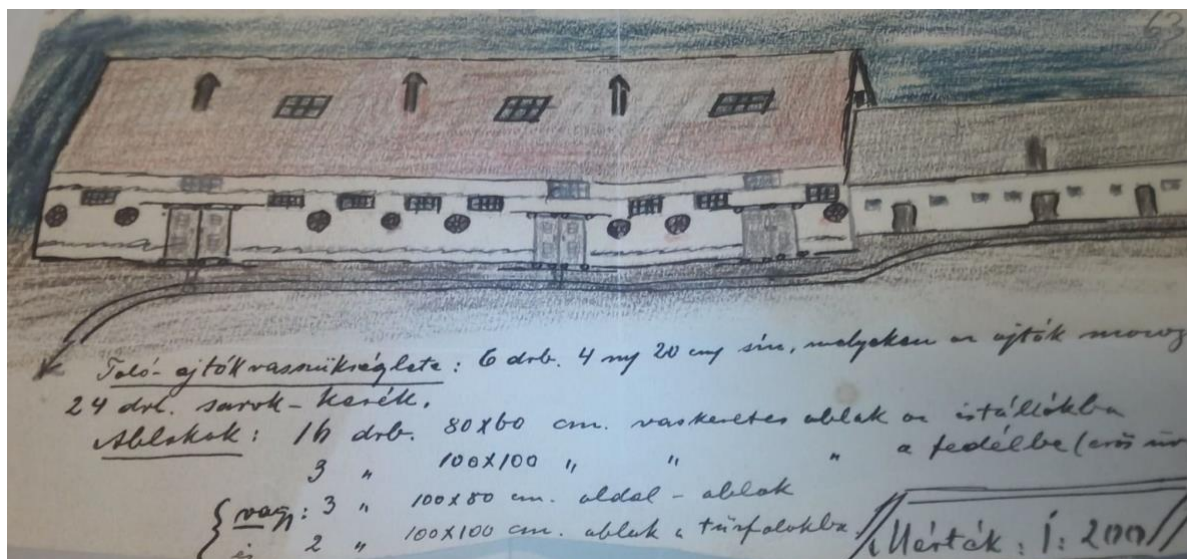 63
Toló-ajtók vasszükséglete: 6 drb. 4 m 20 cm sín, melyeken az ajtók mozog
24 drb. sarok-kerék.
Ablakok: 16 drb. 80x60 cm. vaskeretes ablak az istállókba
3 " 100x100 " " " a fedélbe (erős üv
{ vagy: 3 " 100x80 cm. oldal-ablak
és 2 " 100x100 cm. ablak a tűzfalakba
Mérték: 1:200